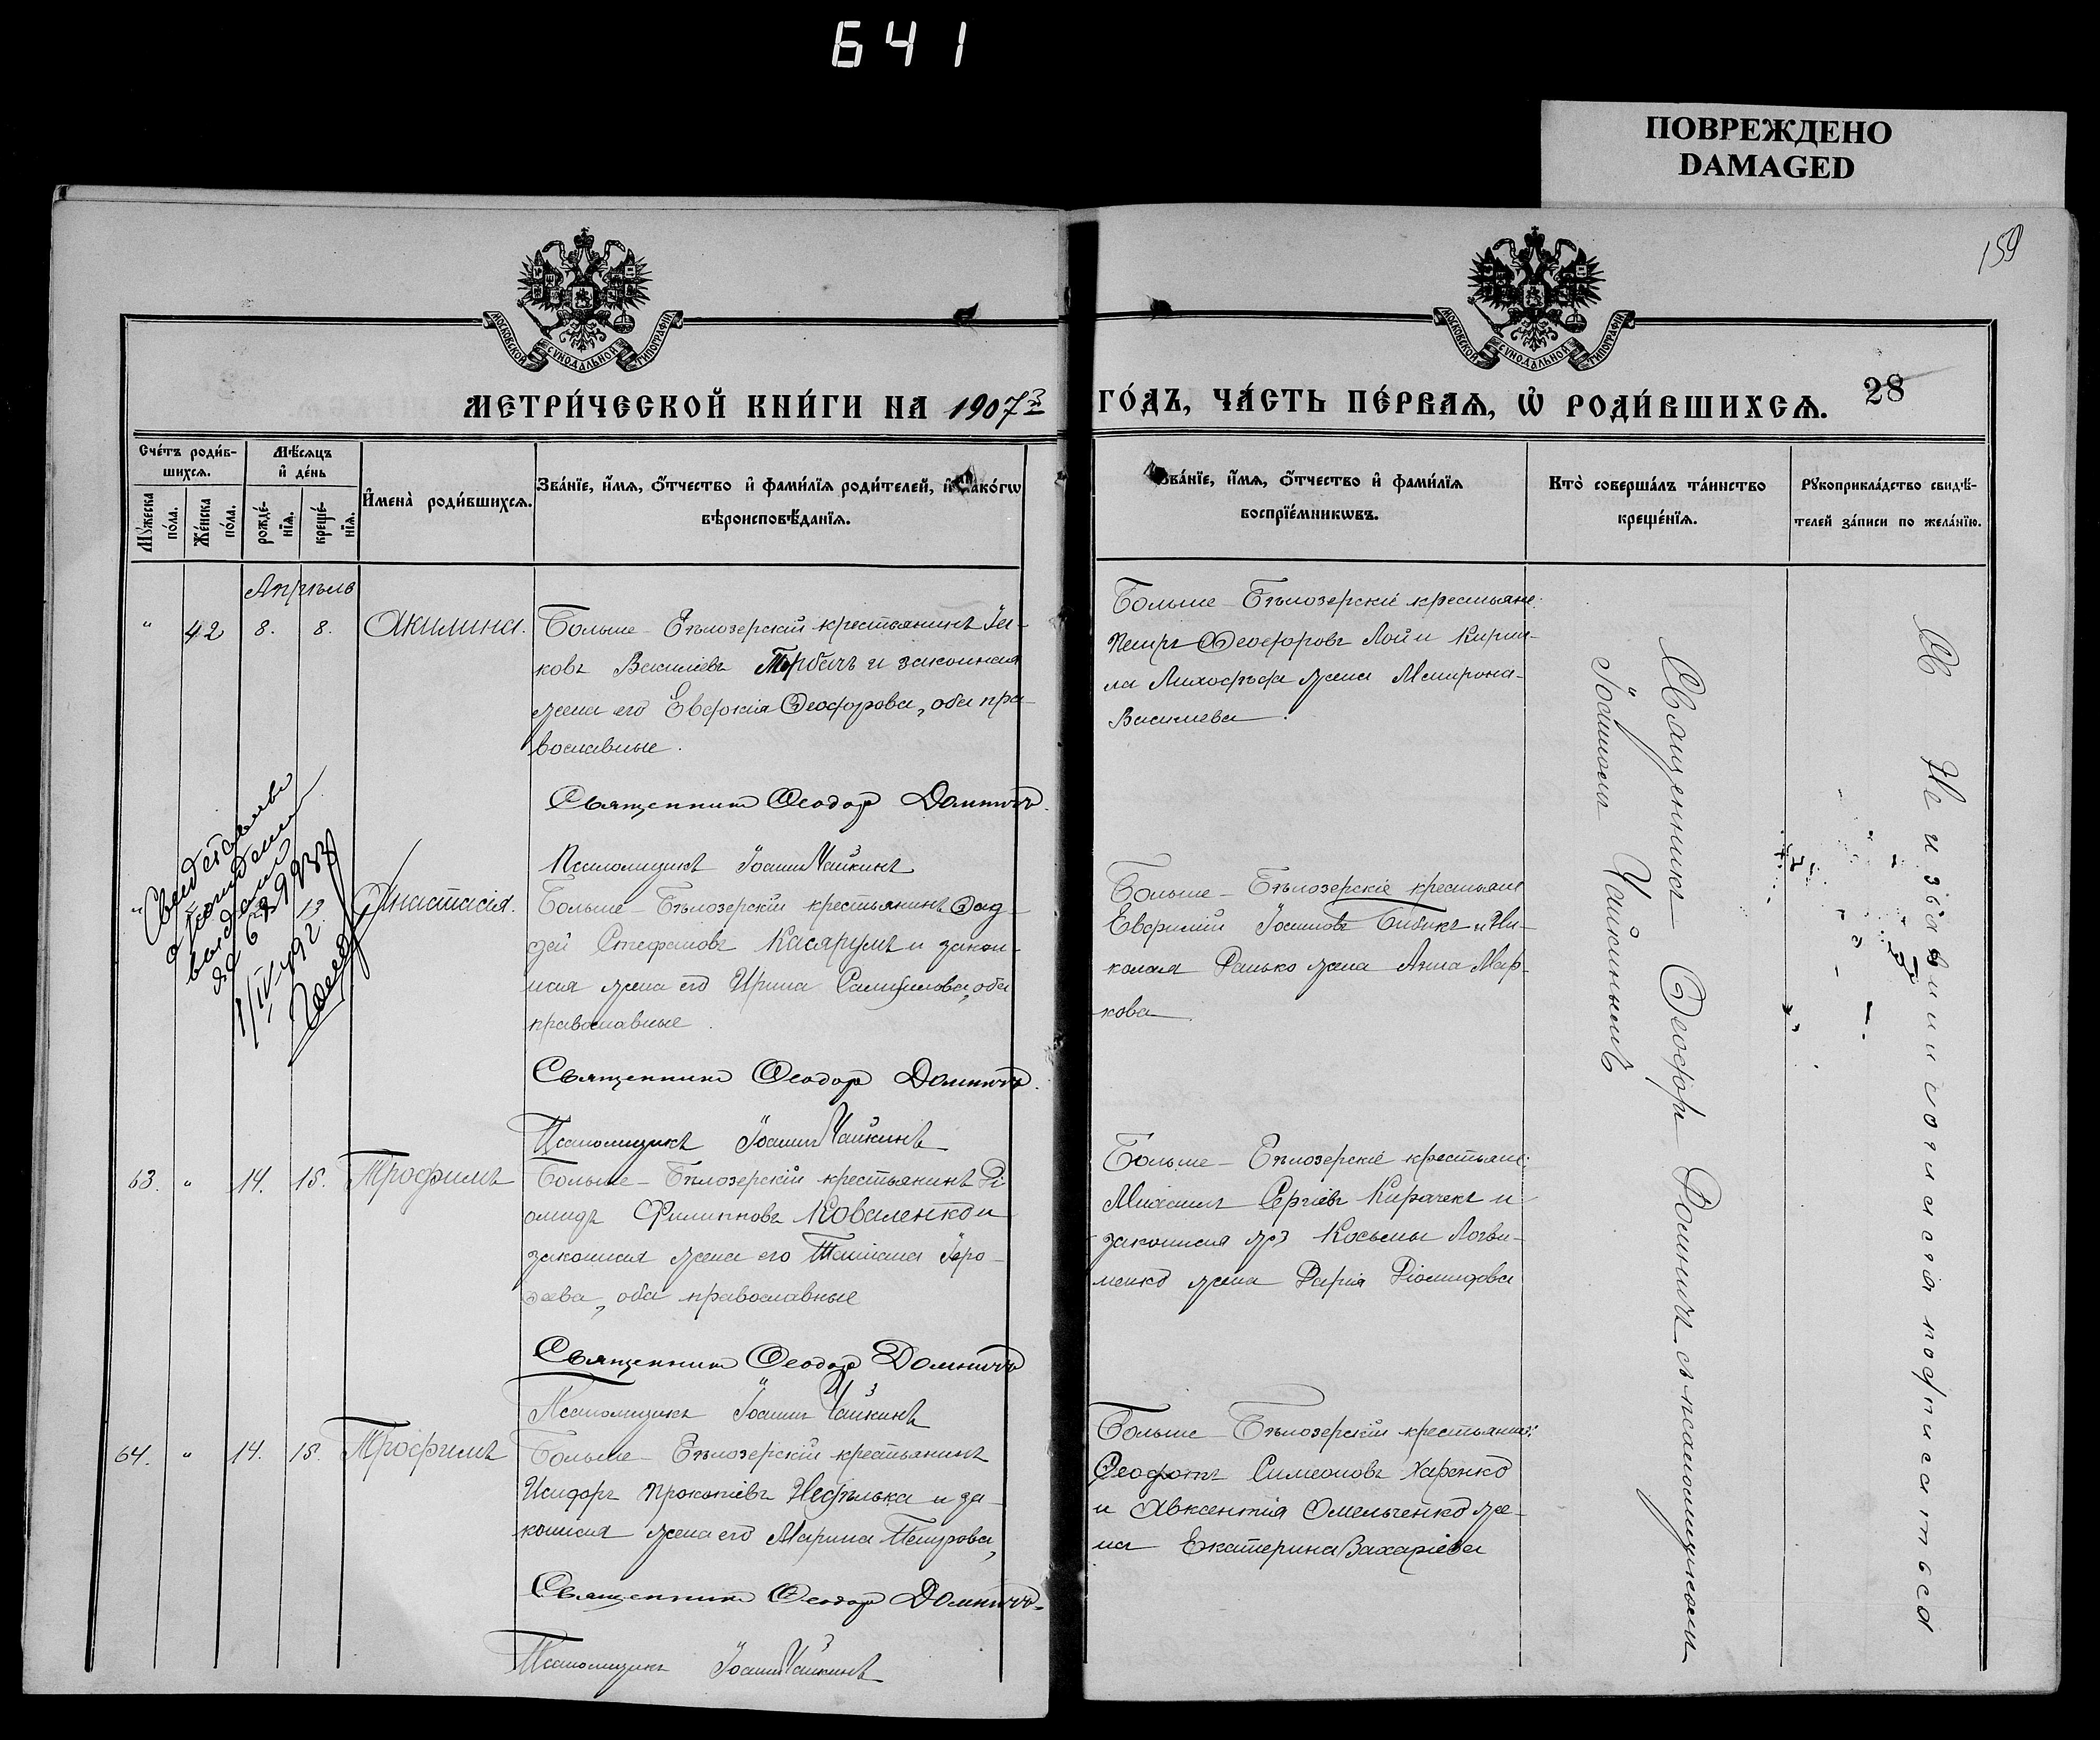 641
ПОВРЕЖДЕНО
DAMAGED
159
МОСКОВСКОЙ СѴНОДАЛЬНОЙ ТИПОГРАФІИ
МОСКОВСКОЙ СѴНОДАЛЬНОЙ ТИПОГРАФІИ
МЕТРИ́ЧЕСКОЙ КНИ́ГИ НА 1907й ГО́ДЪ, ЧА́СТЬ ПЕ́РВАѦ, Ѡ҆ РОДИ́ВШИХСѦ. 28
Сче́тъ роди́в-
шихсѧ.
Мꙋ́жеска по́ла.
Же́нска по́ла.
Мѣ́сѧцъ
и҆ де́нь
рожде́-
нїѧ.
креще́-
нїѧ.
И҆мена̀ роди́вшихсѧ.
Зва́нїе, и҆́мѧ, ѻ҆́тчество и҆ фами́лїѧ роди́телей, и҆ како́гѡ
вѣроисповѣ́данїѧ.
Зва́нїе, и҆́мѧ, ѻ҆́тчество и҆ фами́лїѧ
воспрїе́мникѡвъ.
Кто̀ соверша́лъ та́инство
креще́нїѧ.
Рꙋкоприкла́дство свидѣ́-
телей за́писи по жела́нїю.
Апрѣль
" 42 8. 8. Акилина.
Больше-Бѣлозерскій крестьянинъ Іа-
ковъ Василіевъ и законная
жена его Евфимія Ѳеодорова, оба пра-
вославные.
Священникъ Ѳеодор Домничъ.
Псаломщикъ Іоаннъ Чайкинъ
Больше-Бѣлозерскіе крестьяне:
Петръ Ѳеодоровъ Лой и Кирил-
ла жена Матрона
Васильева.
Свидетельство
о рождении
выдано
1/IV-492
" 19 Анастасія.
Больше-Бѣлозерскій крестьянинъ Ѳад-
дей Стефановъ и закон-
ная жена его Ирина Самуилова, оба
православные.
Священникъ Ѳеодор Домничъ.
Псаломщикъ Іоаннъ Чайкинъ
Больше-Бѣлозерскіе крестьяне
Евфимій Іоанновъ Бибикъ и Ни-
колая жена Анна Мар-
кова
63. " 14. 15. Трофимъ
Больше-Бѣлозерскій крестьянинъ Ді-
омидъ Филипповъ Коваленко и
законная жена его Татіана Іеро-
ѳеева, оба православные
Священникъ Ѳеодор Домничъ
Псаломщикъ Іоаннъ Чайкинъ
Больше-Бѣлозерскіе крестьяне:
Михаилъ Сергіевъ Кирячекъ и
законная Косьмы Логви-
ненко жена Дарія Діомидова
64. " 14. 15. Трофимъ
Больше-Бѣлозерскій крестьянинъ
Исидоръ Прокопіевъ и за-
конная жена его Марина Петрова,
Священникъ Ѳеодор Домничъ.
Псаломщикъ Іоаннъ Чайкинъ
Больше-Бѣлозерскій крестьянинъ:
Ѳеодотъ Симеоновъ Харенко
и Авксентія Омельченко же-
на Екатерина Захаріева
Священникъ Ѳеодоръ Домничъ съ псаломщикомъ
Іоанномъ Чайкинымъ